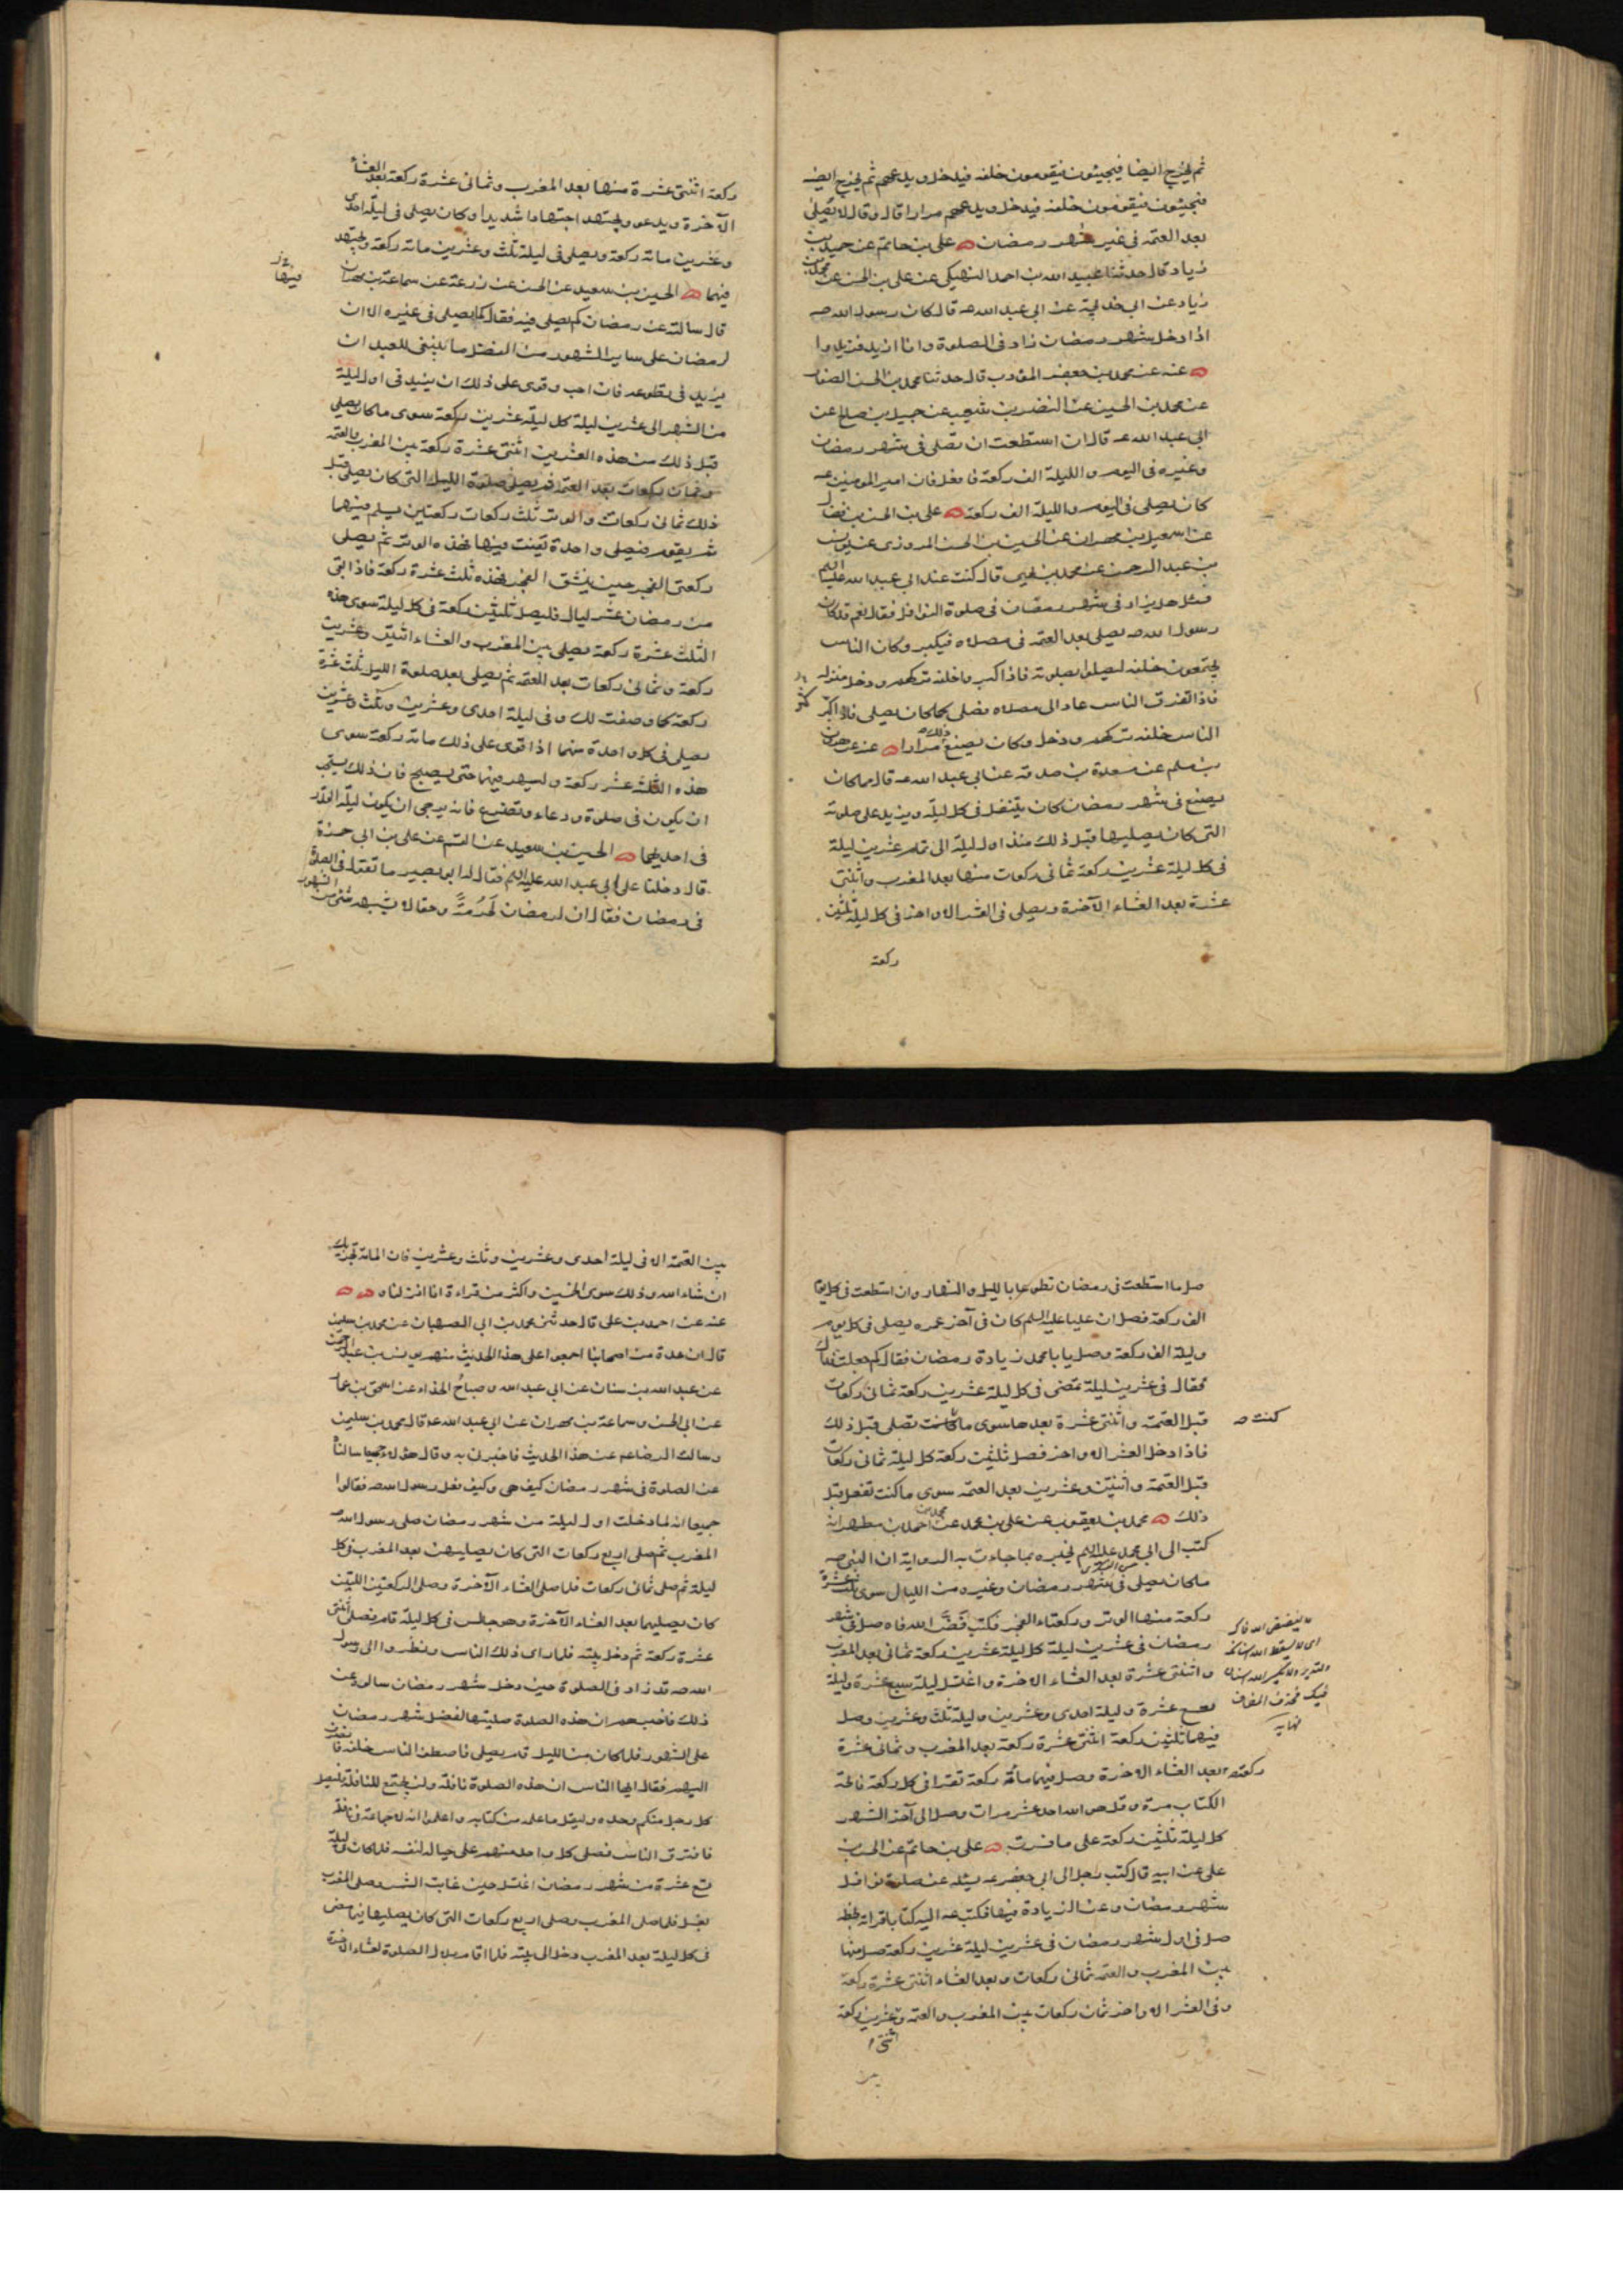 ثم يخرج ايضا فيجيئون فيقومون خلفه فيدخل ويدعهم ثم يخرج ايضا
فيجيئون فيقومون خلفه فيدخل ويدعهم مرارا قال وقال لا تصلى
بعد العتمة فى غير شهر رمضان علي بن حاتم عن حميد بن
زياد قال حدثنا عبيد الله بن احمد النهيكى عن علي بن الحسن عن محمد بن
زياد عن ابى خديجة عن ابى عبد الله ع قال كان رسول الله ص
اذا دخل شهر رمضان زاد فى الصلوة وانا ازيد فزيدوا
عنه عن محمد بن جعفر المؤدب قال حدثنا محمد بن الحسن الصفار
عن محمد بن الحسين عن النضر بن شعيب عن جميل بن صالح عن
ابى عبد الله ع قال ان استطعت ان تصلى فى شهر رمضان
وغيره فى اليوم والليلة الف ركعة فافعل فان امير المؤمنين ع
كان يصلى فى اليوم والليلة الف ركعة علي بن الحسن بن فضال
عن اسمعيل بن مهران عن الحسين بن الحسن المروزى عن يونس
بن عبد الرحمن عن محمد بن يحيى قال كنت عند ابى عبد الله عليه السلم
فسئل هل يزاد فى شهر رمضان فى صلوة النوافل فقال نعم قد كان
رسول الله ص يصلى بعد العتمة فى مصلاه فيكبر وكان الناس
يجتمعون خلفه ليصلوا بصلوته فاذا كثروا خلفه تركهم ودخل منزله
فاذا تفرق الناس عاد الى مصلاه فصلى كما كان يصلى فاذا كثر
كثر
الناس خلفه تركهم ودخل وكان يصنع ذلك مرارا عنه عن هرون
بن مسلم عن مسعدة بن صدقة عن ابى عبد الله ع قال مما كان
يصنع فى شهر رمضان كان يتنفل فى كل ليلة ويزيد على صلوته
التى كان يصليها قبل ذلك منذ اول ليلة الى تمام عشرين ليلة
فى كل ليلة عشرين ركعة ثمانى ركعات منها بعد المغرب واثنتى
عشرة بعد العشاء الآخرة ويصلى فى العشر الاواخر فى كل ليلة ثلثين
ركعة
ركعة اثنتى عشرة منها بعد المغرب وثمانى عشرة ركعة بعد العشاء
الآخرة ويدعو ويجتهد اجتهادا شديدا وكان يصلى فى ليلة احدى
وعشرين مائة ركعة ويصلى فى ليلة ثلث وعشرين مائة ركعة ويجتهد
فيهما الحسين بن سعيد عن الحسن عن زرعة عن سماعة بن مهران
فيها
قال سالته عن رمضان كم يصلى فيه فقال كما يصلى فى غيره الا ان
لرمضان على ساير الشهور من الفضل ما ينبغى للعبد ان
يزيد فى تطوعه فان احب وقوى على ذلك ان يزيد فى اول ليلة
من الشهر الى عشرين ليلة كل ليلة عشرين ركعة سوى ما كان يصلى
قبل ذلك من هذه العشرين اثنتى عشرة ركعة بين المغرب والعتمة
وثمان ركعات بعد العتمة ثم يصلى صلوة الليل التى كان يصلى قبل
ذلك ثمانى ركعات والوتر ثلث ركعات ركعتين يسلم فيهما
ثم يقوم فيصلى واحدة يقنت فيها فهذه الوتر ثم يصلى
ركعتى الفجر حين ينشق الفجر فهذه ثلث عشرة ركعة فاذا بقى
من رمضان عشر ليال فليصل ثلثين ركعة فى كل ليلة سوى هذه
الثلث عشرة ركعة يصلى بين المغرب والعشاء اثنتين وعشرين
ركعة وثمانى ركعات بعد العتمة ثم يصلى بعد صلوة الليل ثلث عشرة
ركعة كما وصفت لك وفى ليلة احدى وعشرين وثلث وعشرين
يصلى فى كل واحدة منهما اذا قوى على ذلك مائة ركعة سوى
هذه الثلث عشر ركعة وليسهر فيهما حتى يصبح فان ذلك يستحب
ان يكون فى صلوة ودعاء وتضرع فانه يرجى ان يكون ليلة القدر
فى احديهما الحسين بن سعيد عن القسم عن علي بن ابى حمزة
قال دخلنا على ابى عبد الله عليه السلم فقال له ابو بصير ما تقول فى الصلوة
فى رمضان فقال ان لرمضان لحرمة وحقا لا يشبهه شئ من الشهور
صل ما استطعت فى رمضان تطوعا بالليل والنهار وان استطعت فى كل يوم
الف ركعة فصل ان عليا عليه السلم كان فى آخر عمره يصلى فى كل يوم
وليلة الف ركعة وصل يا با محمد زيادة رمضان فقال كم جعلت فداك
فقال فى عشرين ليلة تمضى فى كل ليلة عشرين ركعة ثمانى ركعات
قبل العتمة واثنتى عشرة بعدها سوى ما كانت تصلى قبل ذلك
كنت
فاذا دخل العشر الاواخر فصل ثلثين ركعة كل ليلة ثمانى ركعات
قبل العتمة واثنتين وعشرين بعد العتمة سوى ما كنت تفعل قبل
ذلك محمد بن يعقوب عن علي بن محمد عن محمد بن احمد بن مطهر انه
كتب الى ابى محمد عليه السلم يخبره بما جاءت به الرواية ان النبى ص
ما كان يصلى فى شهر رمضان وغيره من الليالى سوى ثلث عشرة
ركعة منها الوتر وركعتاء الفجر فكتب فض الله فاه صل فى شهر
رمضان فى عشرين ليلة كل ليلة عشرين ركعة ثمانى بعد المغرب
واثنتى عشرة بعد العشاء الاخرة واغتسل ليلة سبع عشرة وليلة
تسع عشرة وليلة احدى وعشرين وليلة ثلث وعشرين وصل
فيهما ثلثين ركعة اثنتى عشرة ركعة بعد المغرب وثمانى عشرة
بعد العشاء الاخرة وصل فيهما مائة ركعة تقرا فى كل ركعة فاتحة
ركعة
الكتاب مرة وقل هو الله احد عشر مرات وصل الى آخر الشهر
كل ليلة ثلثين ركعة على ما فسرت علي بن حاتم عن الحسن بن
على عن ابيه قال كتب رجل الى ابى جعفر ع يسئله عن صلوة نوافل
شهر رمضان وعن الزيادة فيها فكتب ع اليه كتابا قراته بخطه
صل فى اول شهر رمضان فى عشرين ليلة عشرين ركعة صل منها
بين المغرب والعتمة ثمانى ركعات وبعد العشاء اثنتى عشرة ركعة
وفى العشر الاواخر ثمان ركعات بين المغرب والعتمة وعشرين ركعة
اثنتى
بين
لا يفضض الله فاك
اى لا يسقط الله اسنانك
والتقدير لا يكسر الله اسنان
فيك فحذف المضاف
نهايه
بين العتمة الا فى ليلة احدى وعشرين وثلث وعشرين فان المائة تجزيك
ان شاء الله وذلك سوى الخمسين واكثر من قراءة انا انزلناه
عنه عن احمد بن على قال حدثنى محمد بن ابى الصهبان عن محمد بن سليمن
قال ان عدة من اصحابنا اجمعوا على هذا الحديث منهم يونس بن عبد الرحمن
عن عبد الله بن سنان عن ابى عبد الله وصباح الحذاء عن اسحق بن عمار
عن ابى الحسن وسماعة بن مهران عن ابى عبد الله ع قال محمد بن سليمن
وسالت الرضا ع عن هذا الحديث فاخبرنى به وقال هؤلاء جميعا سالنا
عن الصلوة فى شهر رمضان كيف هى وكيف فعل رسول الله ص فقالوا
جميعا انه لما دخلت اول ليلة من شهر رمضان صلى رسول الله ص
المغرب ثم صلى اربع ركعات التى كان يصليهن بعد المغرب فى كل
ليلة ثم صلى ثمانى ركعات فلما صلى العشاء الآخرة وصلى الركعتين اللتين
كان يصليهما بعد العشاء الآخرة وهو جالس فى كل ليلة قام فصلى اثنتى
عشرة ركعة ثم دخل بيته فلما راى ذلك الناس ونظروا الى رسول
الله ص قد زاد فى الصلوة حين دخل شهر رمضان سالوه عن
ذلك فاخبرهم ان هذه الصلوة صليتها لفضل شهر رمضان
على الشهور فلما كان من الليل قام يصلى فاصطف الناس خلفه فانصرف
اليهم فقال ايها الناس ان هذه الصلوة نافلة ولن يجتمع للنافلة فليصل
كل رجل منكم وحده وليقل ما علمه من كتابه واعلموا انه لا جماعة فى نافلة
فافترق الناس فصلى كل واحد منهم على حياله لنفسه فلما كان ليلة
تسع عشرة من شهر رمضان اغتسل حين غابت الشمس وصلى المغرب
بغسل فلما صلى المغرب وصلى اربع ركعات التى كان يصليها فيما مضى
فى كل ليلة بعد المغرب دخل الى بيته فلما اقام بلال الصلوة لعشاء الاخرة